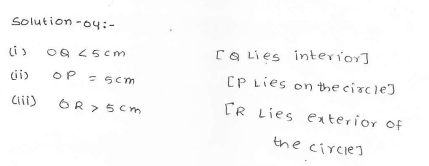 Solution-04:-
(i) OQ < 5cm [Q Lies interior]
(ii) OP = 5cm [P Lies on the circle]
(iii) OR > 5cm [R Lies exterior of
the circle]